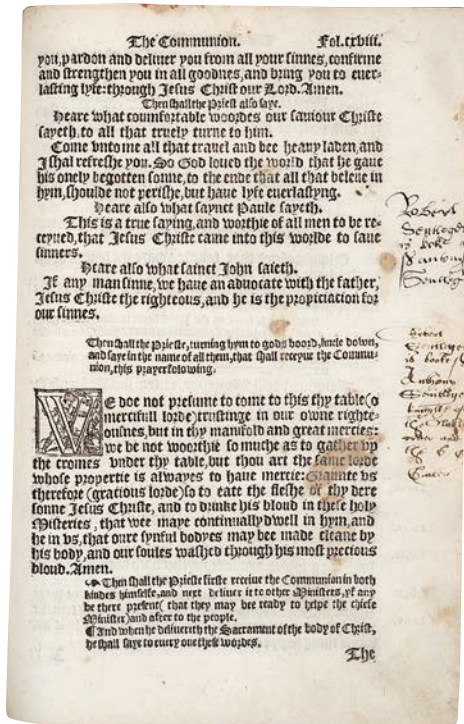 The Communion. Fol.cxviii.
you, pardon and deliver you from all your sinnes, confirme
and strengthen you in all goodnes, and bring you to euer-
lasting lyfe: through Jesus Christ our Lord. Amen.
Then shall the Priest also saye.
Heare what coumfortable woordes our sauiour Christe
sayeth, to all that truely turne to him.
Come vnto me all that trauel and bee heauy laden, and
I shal refreshe you. So God loued the world that he gaue
his onely begotten sonne, to the ende that all that beleue in
hym, shoulde not perishe, but haue lyfe euerlastyng.
Heare also what saynct Paule sayeth.
This is a true saying, and worthie of all men to be re-
ceyued, that Jesus Christe came into this worlde to saue
sinners.
Heare also what sainct John saieth.
If any man sinne, we haue an aduocate with the father,
Jesus Christe the righteous, and he is the propiciation for
our sinnes.
Then shall the Prieste, turning hym to gods boord, knele down,
and saye in the name of all them, that shall receyue the Commu-
nion, this prayer folowing.
WE doe not presume to come to this thy table (o
mercifull lorde) trustinge in our owne righte-
ousnes, but in thy manifold and great mercies:
we be not woorthie so muche as to gather vp
the cromes vnder thy table, but thou art the same lorde
whose propertie is alwayes to haue mercie: Graunte vs
therefore (gratious lorde) so to eate the fleshe of thy dere
sonne Jesus Christe, and to drinke his bloud in these holy
Misteries, that wee maye continually dwell in hym, and
he in vs, that oure synful bodyes may bee made cleane by
his body, and our soules washed through his most precious
bloud. Amen.
Then shall the Prieste firste receiue the Communion in both
kindes himselfe, and next deliuer it to other Ministers, yf any
be there present (that they may bee ready to helpe the chiefe
Minister) and after to the people.
¶ And when he deliuereth the Sacrament of the body of Christ,
he shall saye to euery one these wordes.
The
Robert
Anthony